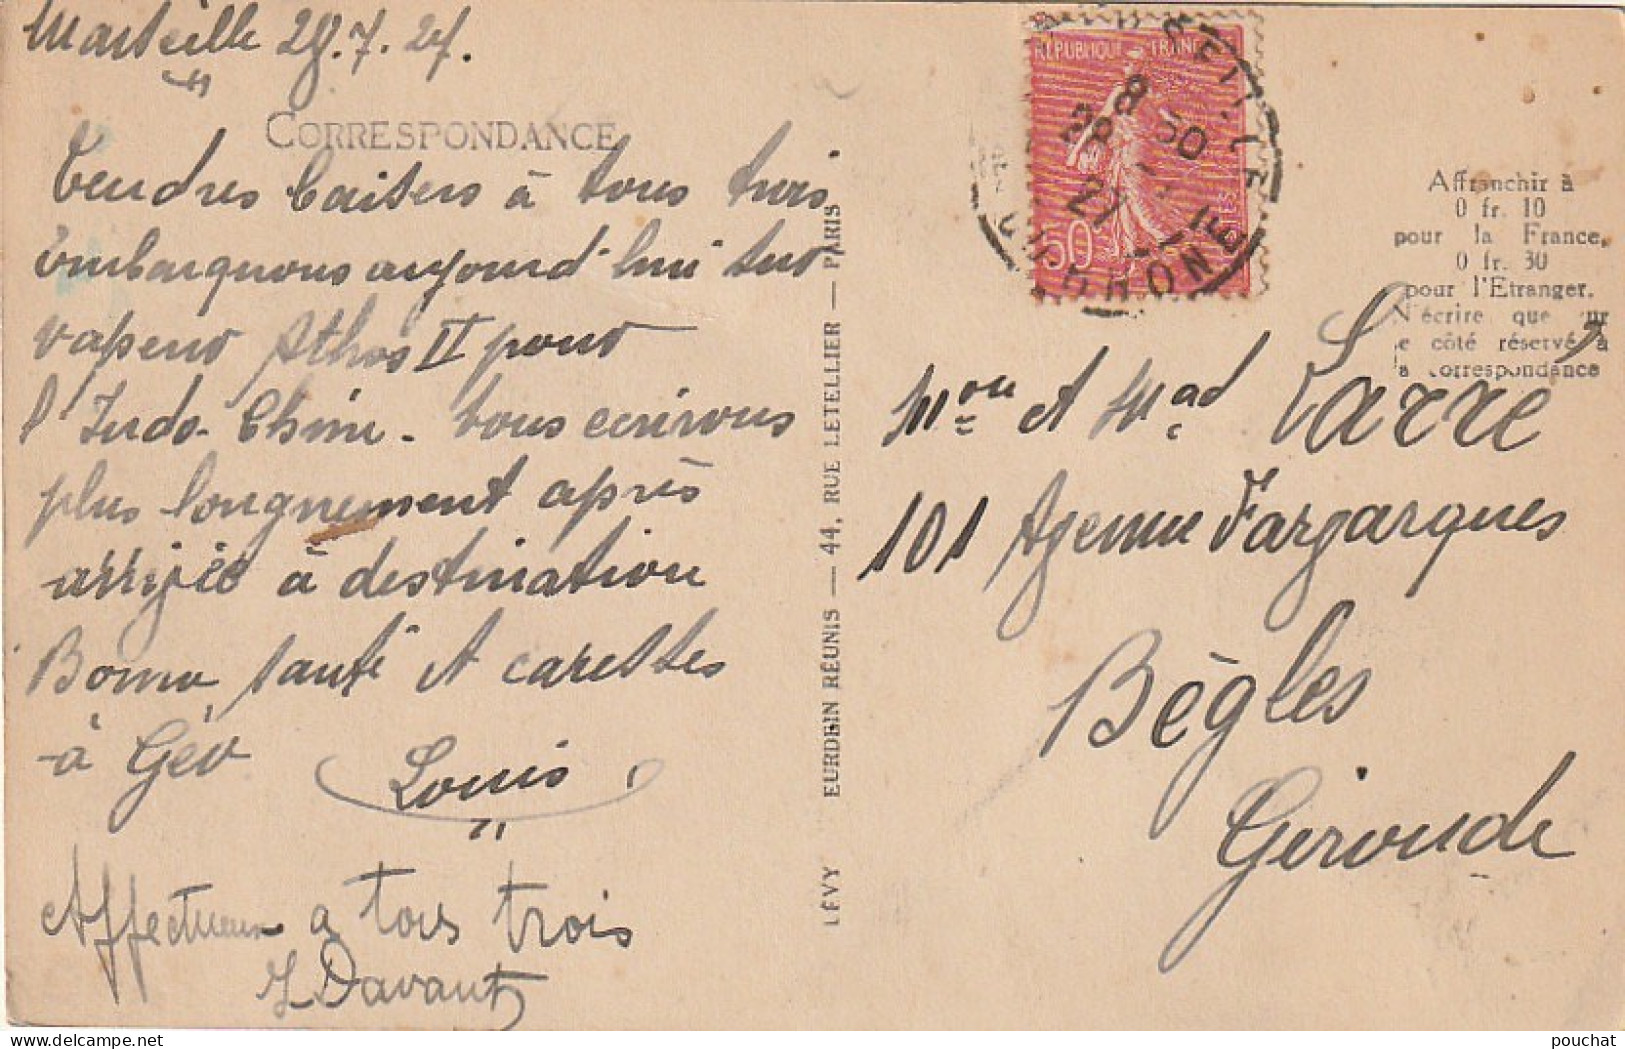 Marseille 28.7.27.
CORRESPONDANCE
Tendres baisers à tous trois
Embarquons aujourd'hui sur
vapeur Athos II pour
l'Indo-Chine - Vous écrirons
plus longuement après
arrivée à destination
Bonne santé et caresses
à Géo
Louis
Affectueux a tous trois
Davant
LÉVY EURDEIN RÉUNIS — 44, RUE LETELLIER — PARIS
RÉPUBLIQUE FRANC
50
8 50
28
27
RHONE
Affranchir à
0 fr. 10
pour la France,
0 fr. 30
pour l'Etranger.
N'écrire que sur
le côté réservé à
la correspondance
Mon et Mad Larre
101 Avenue Fargargues
Bègles
Gironde
pouchat